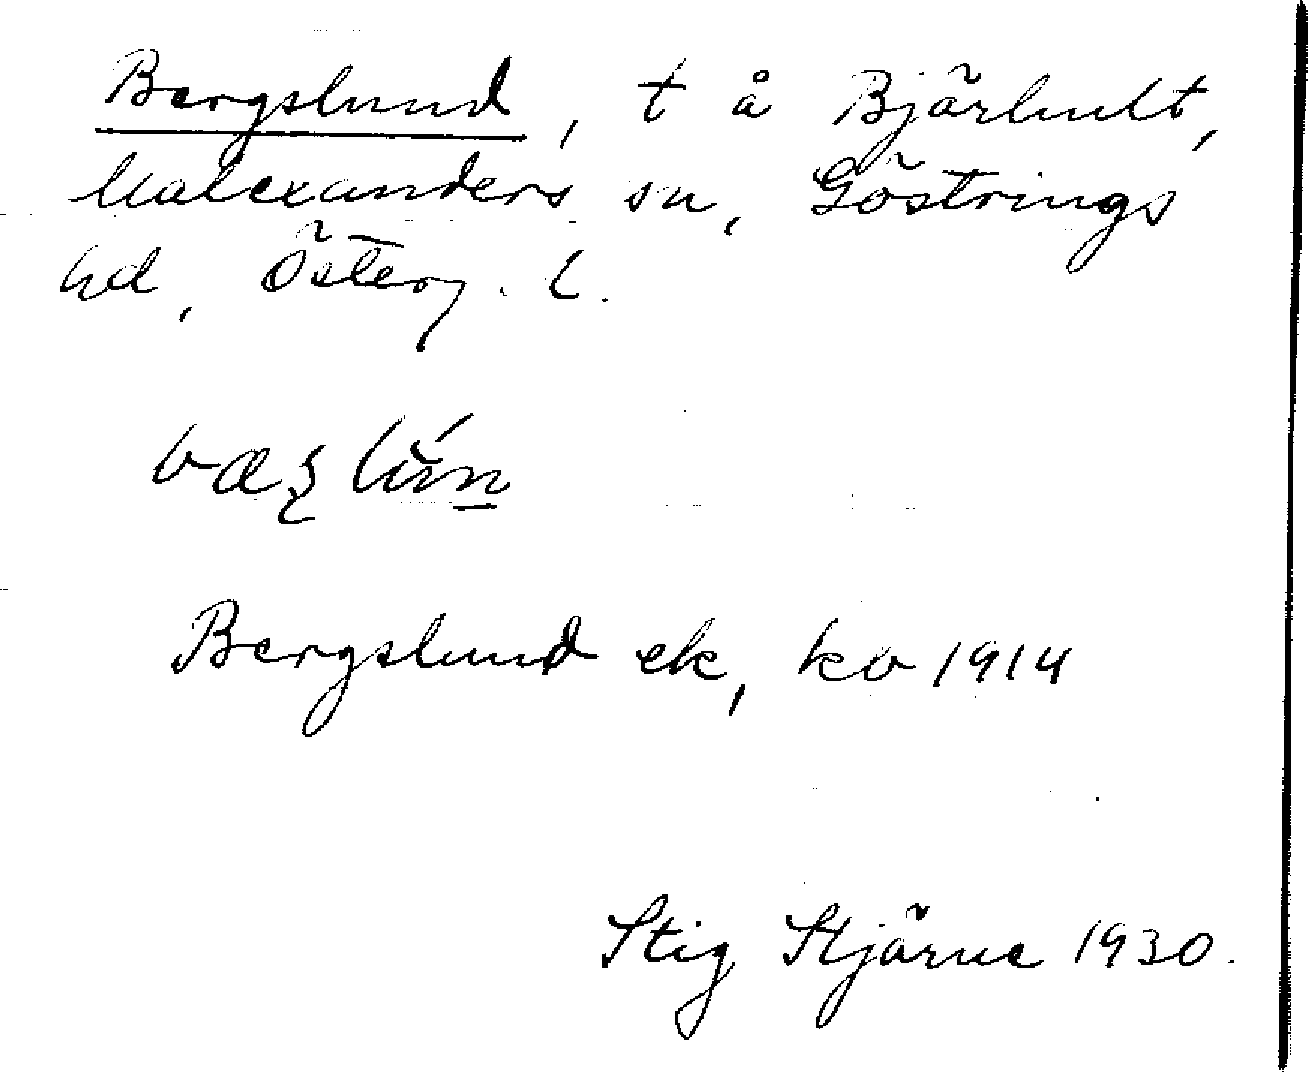 Bergslund, t å Bjärhult,
Malexanders sn, Göstrings
hd, Österg. l.
Bergslund ek, kv 1914
Stig Stjärne 1930.